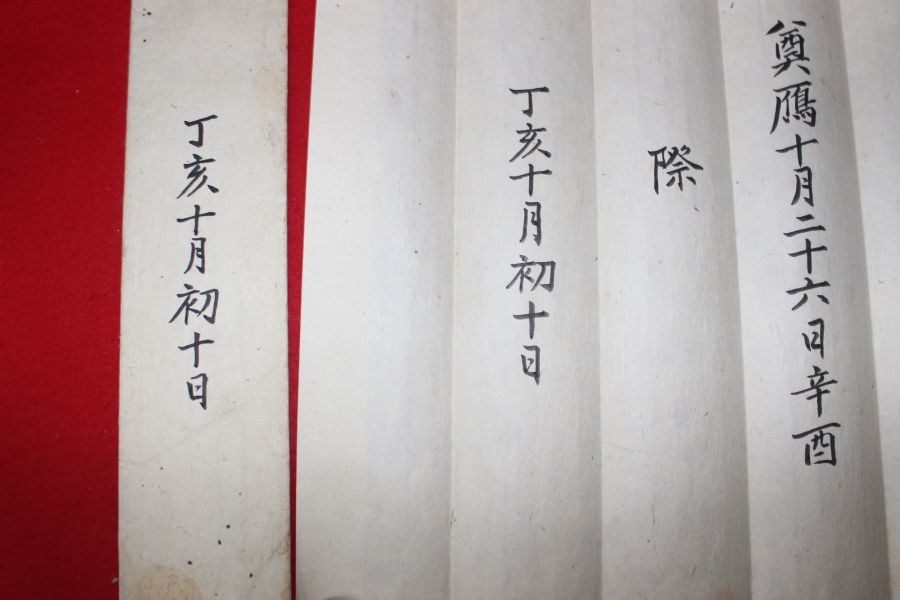 奠鴈十月二十六日辛酉
際
丁亥十月初十日
丁亥十月初十日